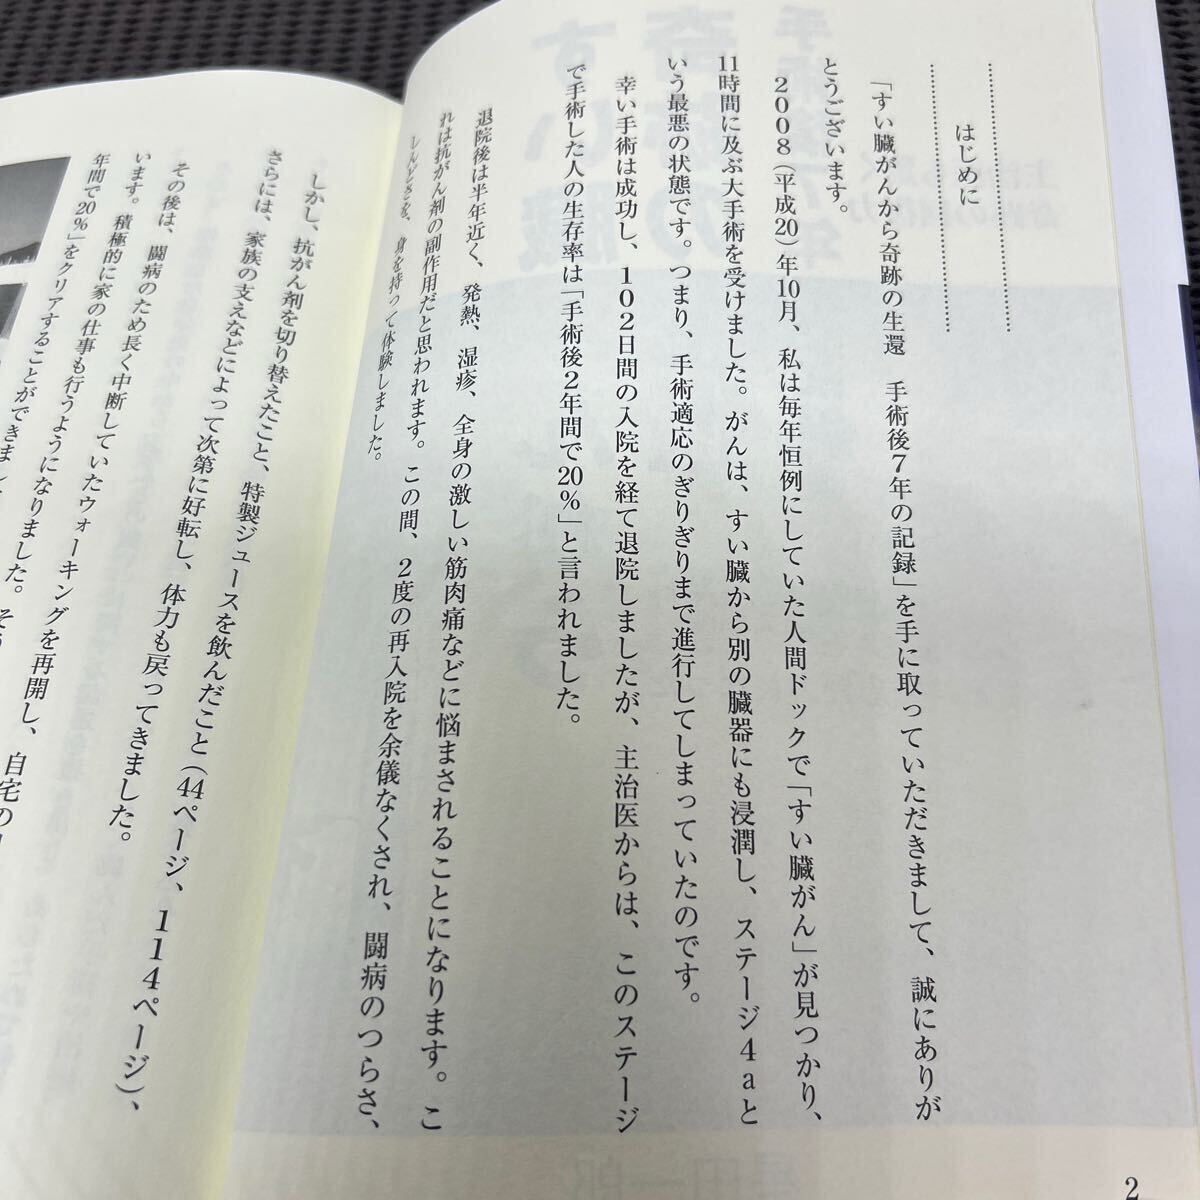 はじめに
「すい臓がんから奇跡の生還　手術後７年の記録」を手に取っていただきまして、誠にありが
とうございます。
２００８（平成20）年10月、私は毎年恒例にしていた人間ドックで「すい臓がん」が見つかり、
11時間に及ぶ大手術を受けました。がんは、すい臓から別の臓器にも浸潤し、ステージ４ａと
いう最悪の状態です。つまり、手術適応のぎりぎりまで進行してしまっていたのです。
幸い手術は成功し、１０２日間の入院を経て退院しましたが、主治医からは、このステージ
で手術した人の生存率は「手術後２年間で20％」と言われました。
退院後は半年近く、発熱、湿疹、全身の激しい筋肉痛などに悩まされることになります。こ
れは抗がん剤の副作用だと思われます。この間、２度の再入院を余儀なくされ、闘病のつらさ、
しんどさを、身を持って体験しました。
しかし、抗がん剤を切り替えたこと、特製ジュースを飲んだこと（44ページ、１１４ページ）、
さらには、家族の支えなどによって次第に好転し、体力も戻ってきました。
その後は、闘病のため長く中断していたウォーキングを再開し、自宅の
います。積極的に家の仕事も行うようになりました。そう
年間で20％」をクリアすることができまして
2